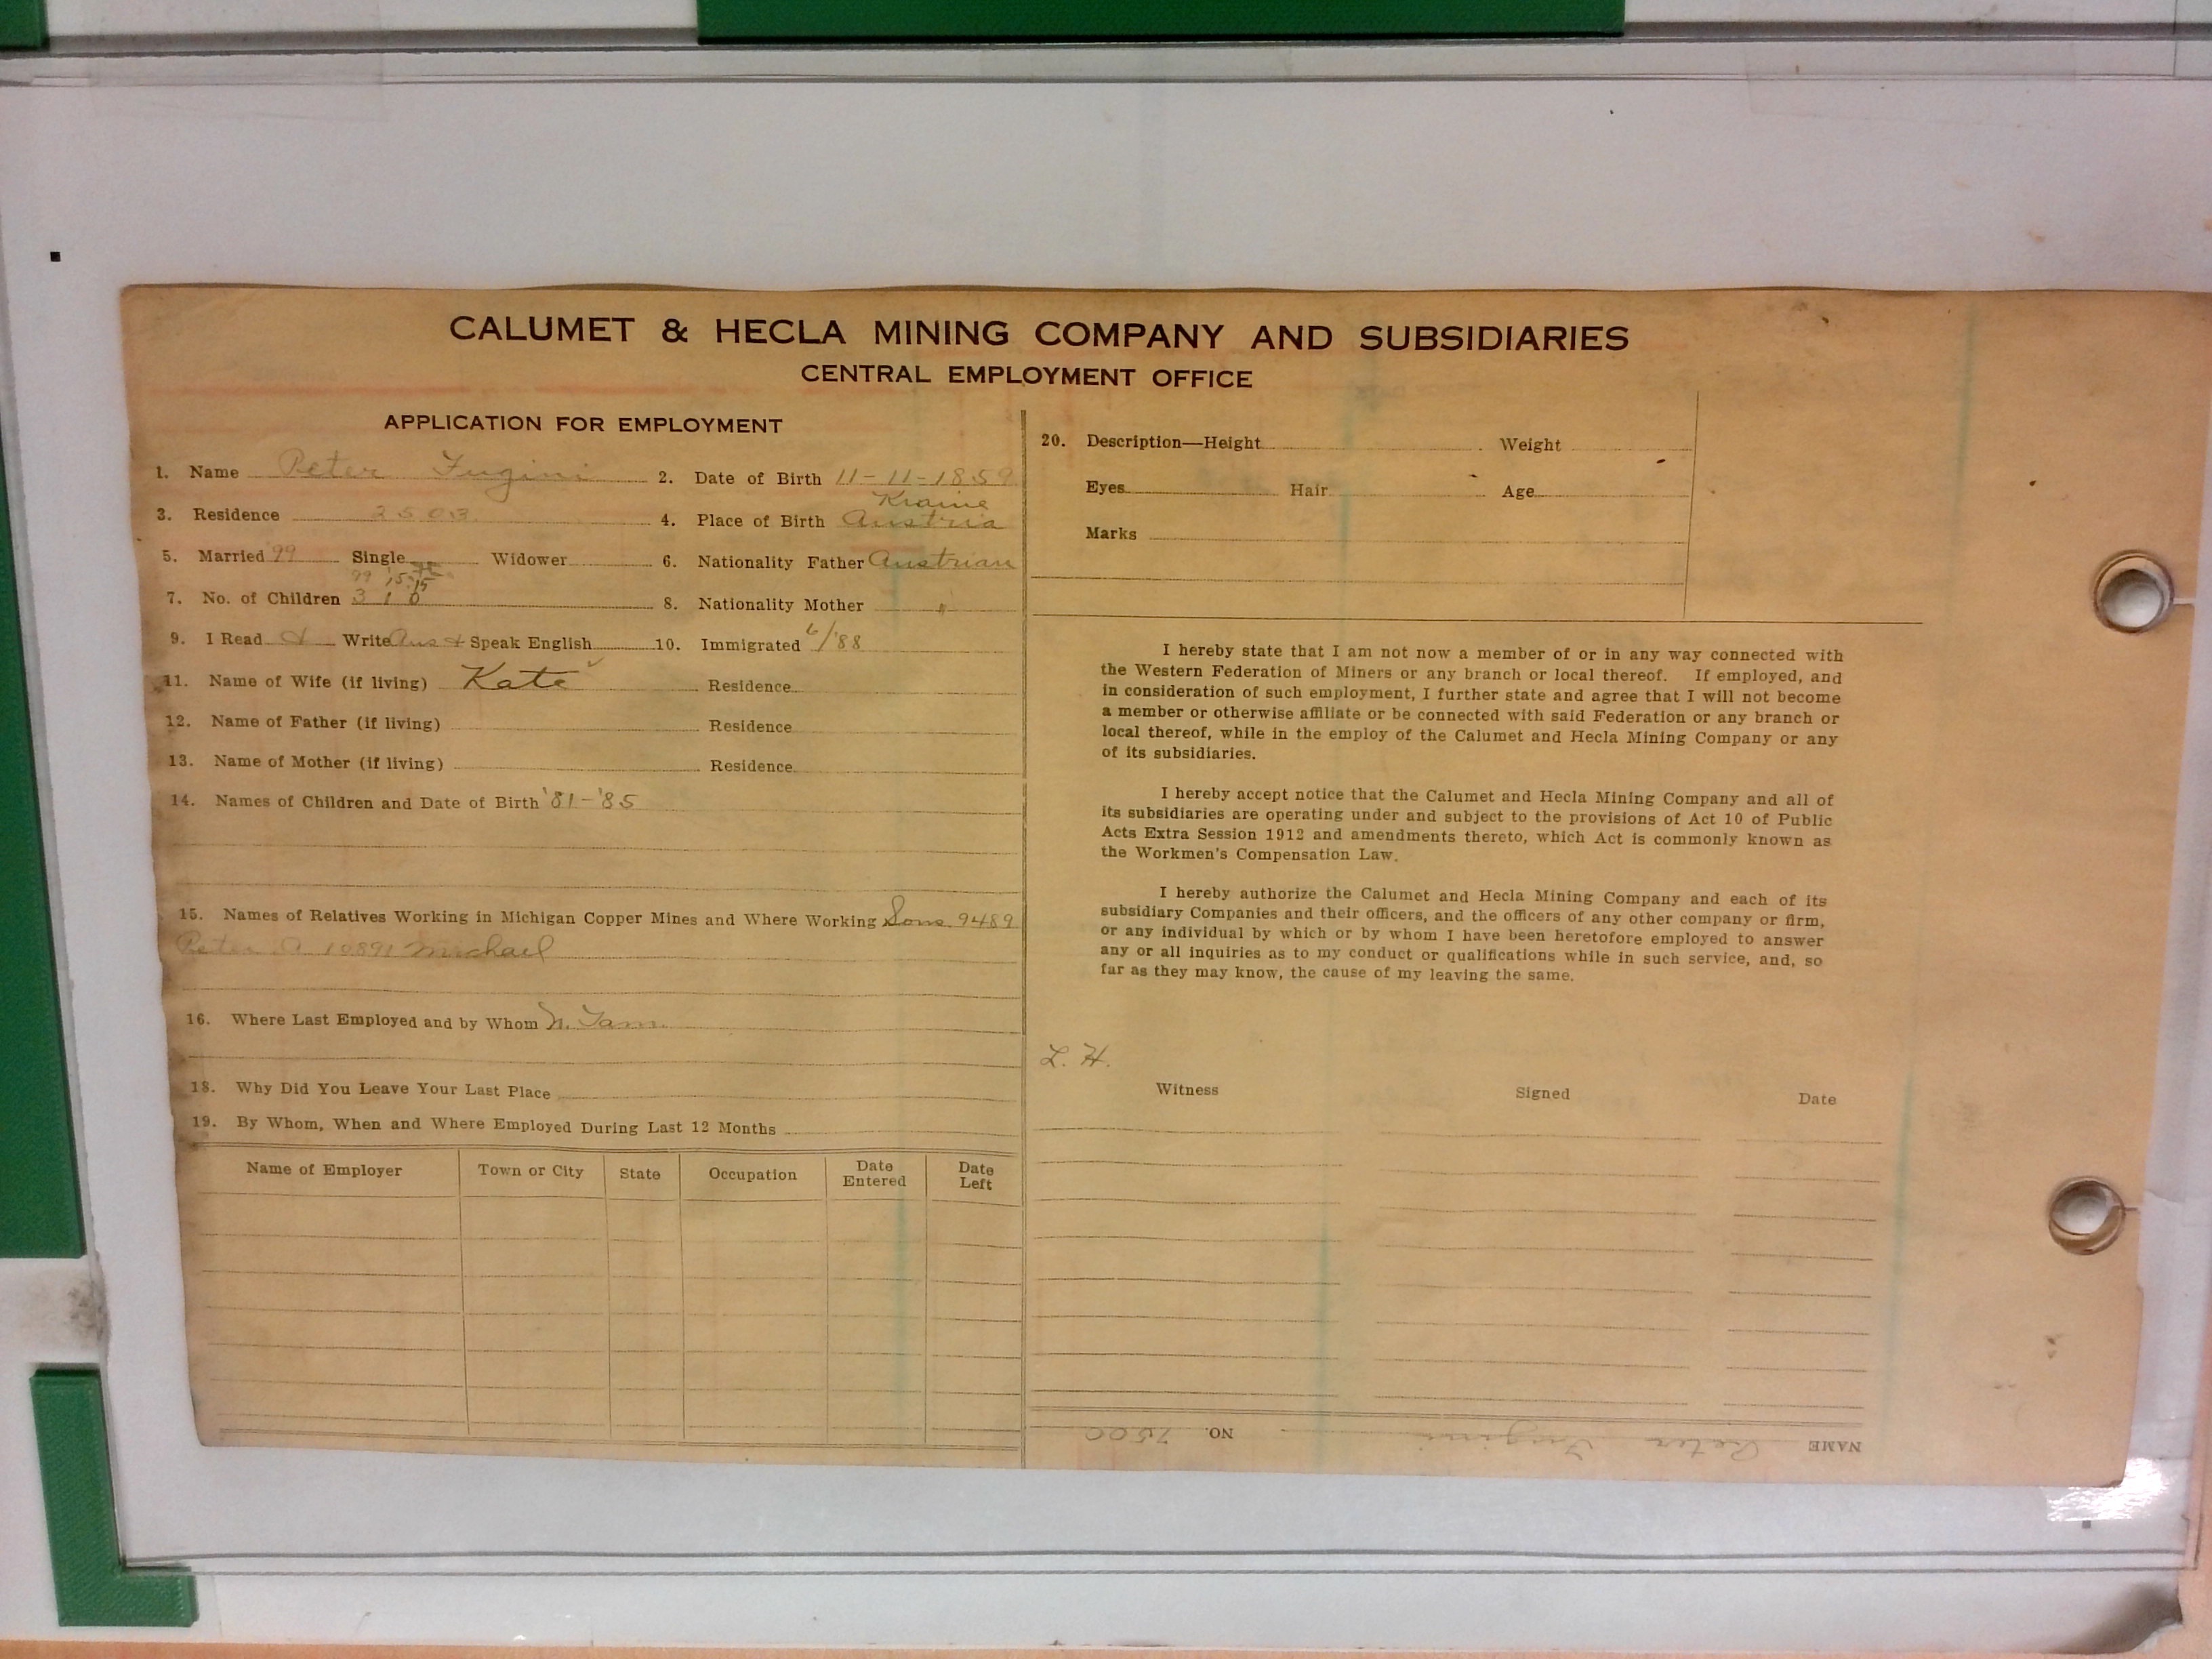 CALUMET & HECLA MINING COMPANY AND SUBSIDIARIES
CENTRAL EMPLOYMENT OFFICE
APPLICATION FOR EMPLOYMENT
1. Name Peter Fugini 2. Date of Birth 11-11-1859
3. Residence 2503 4. Place of Birth Kraine Austria
5. Married 99 Single Widower 6. Nationality Father Austrian
99 '15 '15
7. No. of Children 3 1 0 8. Nationality Mother "
9. I Read Write Aus + Speak English 10. Immigrated 6/'88
11. Name of Wife (if living) Kate Residence
12. Name of Father (if living) Residence
13. Name of Mother (if living) Residence
14. Names of Children and Date of Birth '81-'85
15. Names of Relatives Working in Michigan Copper Mines and Where Working Sons 9489
Peter 10891 Michael
16. Where Last Employed and by Whom N. Tam.
18. Why Did You Leave Your Last Place
19. By Whom, When and Where Employed During Last 12 Months
Name of Employer Town or City State Occupation Date Entered Date Left
20. Description—Height Weight
Eyes Hair Age
Marks
I hereby state that I am not now a member of or in any way connected with
the Western Federation of Miners or any branch or local thereof. If employed, and
in consideration of such employment, I further state and agree that I will not become
a member or otherwise affiliate or be connected with said Federation or any branch or
local thereof, while in the employ of the Calumet and Hecla Mining Company or any
of its subsidiaries.
I hereby accept notice that the Calumet and Hecla Mining Company and all of
its subsidiaries are operating under and subject to the provisions of Act 10 of Public
Acts Extra Session 1912 and amendments thereto, which Act is commonly known as
the Workmen's Compensation Law.
I hereby authorize the Calumet and Hecla Mining Company and each of its
subsidiary Companies and their officers, and the officers of any other company or firm,
or any individual by which or by whom I have been heretofore employed to answer
any or all inquiries as to my conduct or qualifications while in such service, and, so
far as they may know, the cause of my leaving the same.
L. H.
Witness Signed Date
NAME Peter Fugini NO. 7500